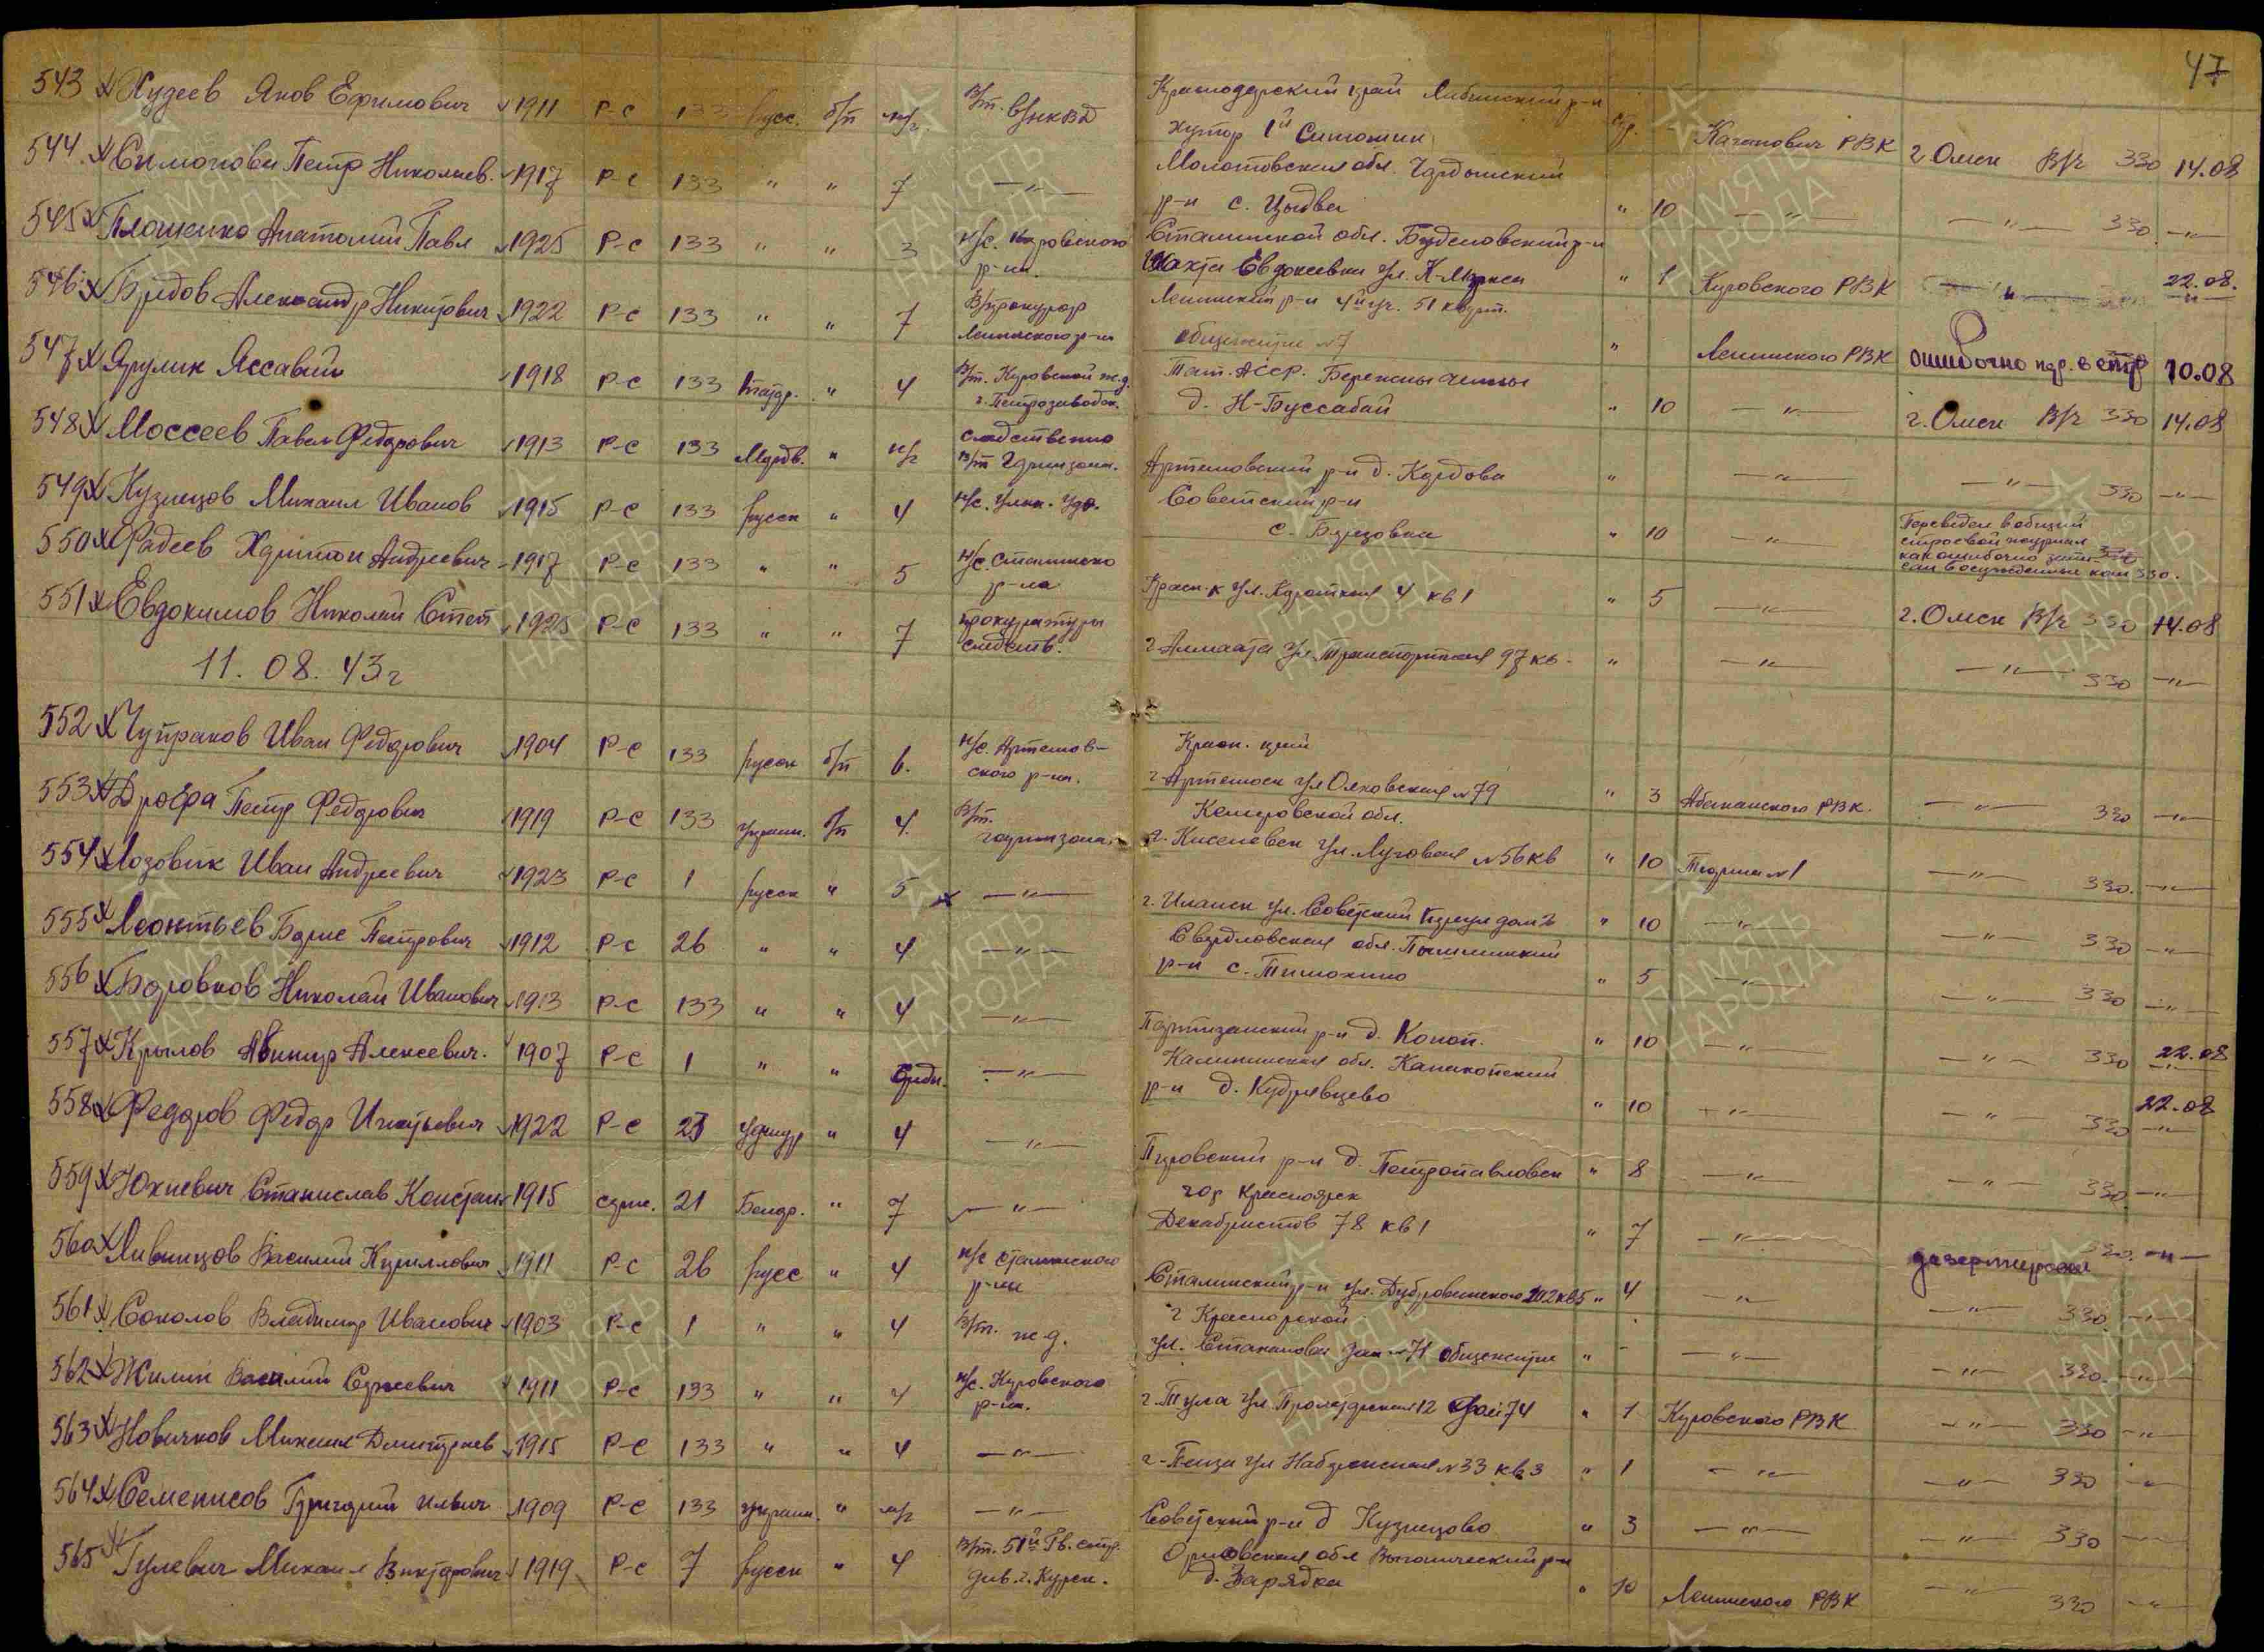 47
543 Кудеев Яков Ефимович 1911 Р-С 133 Русс. б/п м/г в/т. в/нквд Краснодарский край Лабинский р-н стр. Каганович РВК г Омск в/ч 330 14.08
хутор 1й
544. Симонов Петр Николаев. 1917 Р-С 133 " " 7 —"— Молотовская обл. Чердынский " 10 —"— —"— 330 —"—
р-н с. Цыдва
545 Плошенко Анатолий Павл 1925 Р-С 133 " " 3 н/с. Кировского Сталинской обл. Буденовский р-н " 1 Кировского РВК 22.08.
р-на. Шахта Евдокеевка ул. К-Маркса
546 Бридов Александр Никитович 1922 Р-С 133 " " 7 В/прокурор Ленинский р-н 4й уч. 51 кварт. " Ленинского РВК ошибочно пер. в стр 10.08
Ленинского р-на общежитие №7
547 Ярулин Яссавий 1918 Р-С 133 татар. " 4 в/т. Кировской ж.д. Тат. АССР. " 10 —"— г. Омск в/ч 330 14.08
г. Петрозаводск. д. Н-Буссабай
548 Моссеев Павел Федорович 1913 Р-С 133 Мордв. " н/г следственно Артемовский р-н д. Кордова " —"— —"— 330 —"—
в/т Гарнизон.
549 Кузнецов Михаил Иванов 1915 Р-С 133 русск " 4 Советский р-н " 10 —"— Переведен в общий
с. Березовка строевой журнал
как ошибочно запи-
сан в осужденные ком 330.
550 Фадеев Харитон Андреевич 1917 Р-С 133 " " 5 н/с. Сталинско Красн-к ул. Короткая 4 кв 1 " 5 —"— г. Омск в/ч 330 14.08
р-на
551 Евдокимов Николай Степ 1925 Р-С 133 " " 7 прокуратуры г Алмаата ул Транспортная 97 кв. " —"— —"— 330 —"—
следств.
11. 08. 43 г
552 Чупраков Иван Федорович 1904 Р-С 133 русск б/п 6. н/с. Артемов- Красн. край " 3 Абаканского РВК. —"— 330 —"—
ского р-на. г. Артемовск ул Ольховская №79
553 Дрофа Петр Федорович 1919 Р-С 133 украин. б/п 4. в/т. Кемеровской обл. " 10 Тюрьма №1 —"— 330. —"—
гарнизона. г. Киселевск ул. Луговая №56 кв
554 Лозовик Иван Андреевич 1923 Р-С 1 русск " 5 —"— г. Иланск ул. Советский " 10 —"— —"— 330 —"—
555 Леонтьев Борис Петрович 1912 Р-С 26 " " 4 —"— Свердловская обл. Пышминский " 5 —"— —"— 330 —"—
р-н с. Тимохино
556 Боровков Николай Иванович 1913 Р-С 133 " " 4 —"— Партизанский р-н д. Коноп. " 10 —"— —"— 330 22.08
557 Крылов Авинир Алексеевич. 1907 Р-С 1 " " средн. —"— Калининская обл. Канакопский " 10 —"— —"— 330 22.08
р-н д. Кудрявцево
558 Федоров Федор Игнатьевич 1922 Р-С 23 удмур " 4 —"— Пировский р-н д. Петропавловск " 8 —"— —"— 330 —"—
559 Юхневич Станислав Констан 1915 серж. 21 Белор. " 7 —"— гор Красноярск " 7 —"— дезертировал 330. —"—
Декабристов 78 кв 1
560 Ливинцов Василий Кириллович 1911 Р-С 26 русс " 4 н/с сталинского Сталинский р-н ул. Дубровинского 202 кв5 " 4 —"— —"— 330. —"—
р-на
561 Соколов Владимир Иванович 1903 Р-С 1 " " 4 в/т. ж-д. г Красноярской " - —"— —"— 330. —"—
ул. общежитие
562 Жилин Василий Сергеевич 1911 Р-С 133 " " 4 н/с. Кировского г. Тула ул. Пролетарская 12 74 " 1 Кировского РВК —"— 330 —"—
р-на.
563 Новичков Михаил Дмитриев 1915 Р-С 133 " " 4 —"— г. Пенза ул Набережная №33 кв.3 " 1 —"— —"— 330 —"—
564 Семенисов Григорий Ильич 1909 Р-С 133 украин. " м/г —"— Советский р-н д Кузнецово " 3 —"— —"— 330 —"—
565 Гулевич Михаил Викторович 1919 Р-С 7 русск " 4 в/т. 51й Гв. стр. Орловская обл Выгонический р-н " 10 Ленинского РВК —"— 330 —"—
див. г. Курск. д. Зарядка
ПАМЯТЬ НАРОДА